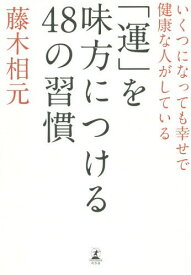 いくつになっても幸せで
健康な人がしている
「運」を
味方につける
48の習慣
藤木相元